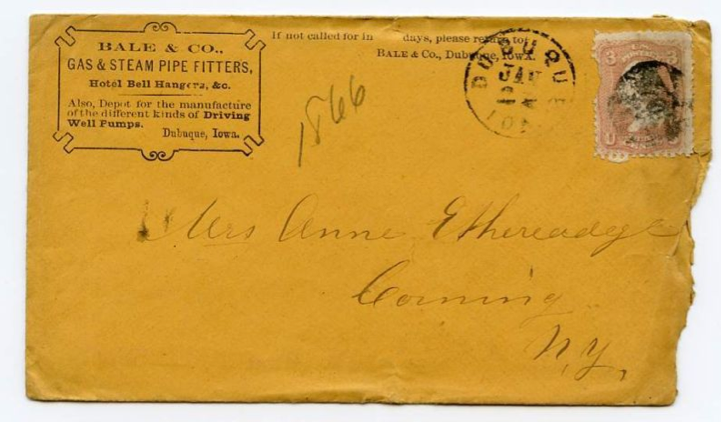 BALE & CO.,
GAS & STEAM PIPE FITTERS,
Hotel Bell Hangers, &c.
Also, Depot for the manufacture
of the different kinds of Driving
Well Pumps.
Dubuque, Iowa.
If not called for in days, please return to
BALE & Co., Dubuque, Iowa.
DUBUQUE
JAN
IOWA
3 3
U
1866
Mrs Anne Ethereadge
Corning
N.Y.